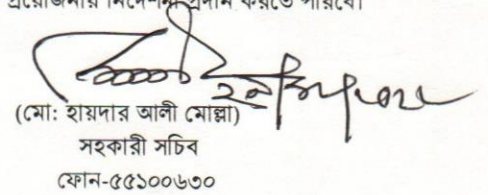 প্রয়োজনীয় নির্দেশনা প্রদান করতে পারবে।
(মো: হায়দার আলী মোল্লা)
সহকারী সচিব
ফোন-৫৫১০০৬৩০